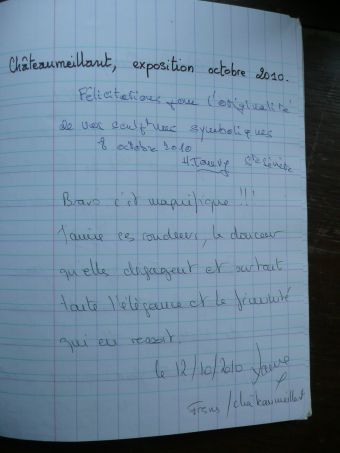 Châteaumeillant, exposition octobre 2010.
Félicitations pour l'originalité
de vos sculptures symboliques
8 octobre 2010
Bravo c'est magnifique !!!
J'aime ces rondeurs, la douceur
qu'elles dégagent et surtout
toute l'élégance et la féminité
qui en ressort.
le 12/10/2010
/châteaumeillant